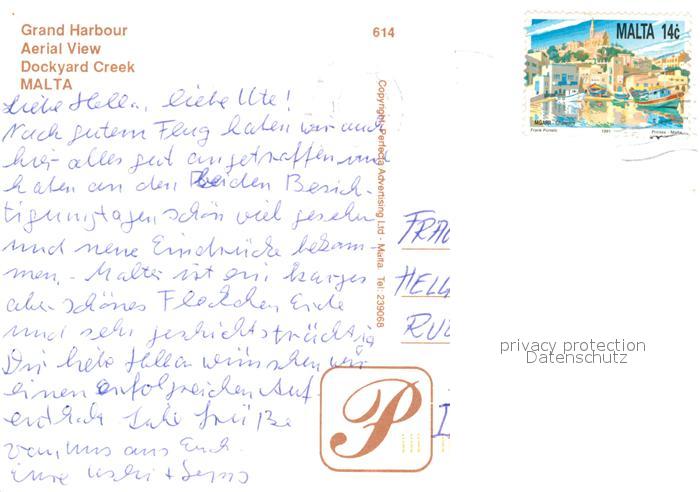 Grand Harbour
Aerial View
Dockyard Creek
MALTA
614
MALTA 14c
MGARR
Frank Portelli 1991 Printex - Malta
Liebe Hella, liebe Ute!
Nach gutem Flug haben wir auch
hier alles gut angetroffen und
haben an den Beiden Besich-
tigungstagen schön viel gesehen
und neue Eindrücke bekom-
men. - Malta ist ein karges
aber schönes Fleckchen Erde
und sehr geschichtsträchtig
Dir liebe Hella wünschen wir
einen erfolgreichen Auf-
enthalt Liebe Grüße
von uns an Euch.
Eure Uschi +
Copyright Perfecta Advertising Ltd - Malta. Tel: 239068
FRAU
HELL
RU
P
privacy protection
Datenschutz